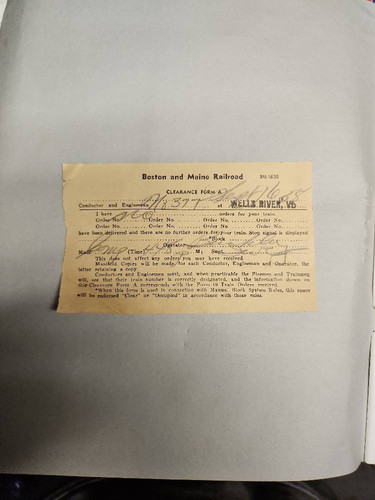 Boston and Maine Railroad
CLEARANCE FORM A
Conductor and Engineman at WELLS RIVER, Vt
I have no orders for your train.
Order No. Order No. Order No. Order No.
Order No. Order No. Order No. Order No.
have been delivered and there are no further orders for your train. Stop signal is displayed
*Block
Operator
(Time) M; Supt.
This does not affect any orders you may have received.
Manifold Copies will be made for each Conductor, Engineman and Operator, the
latter retaining a copy
Conductors and Enginemen must, and when practicable the Firemen and Trainmen
will, see that their train number is correctly designated, and the information shown on
this Clearance Form A corresponds with the Form 19 Train Orders received.
*When this form is used in connection with Manual Block System Rules, this space
will be endorsed "Clear" or "Occupied" in accordance with those rules.